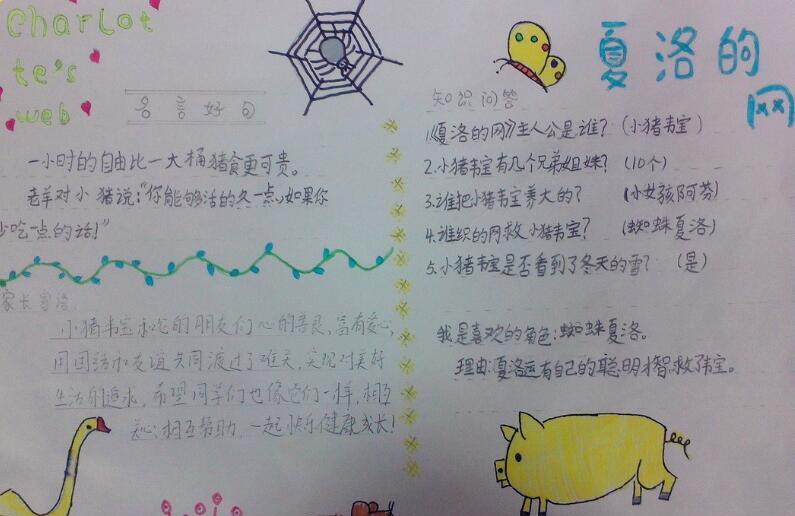 Charlot
te's
web
名言好句
一小时的自由比一大桶猪食更可贵。
老羊对小猪说:"你能够活的久一点,如果你
少吃一点的话!"
家长寄语
小猪韦宝和它的朋友们心的善良,富有爱心,
用团结和友谊共同渡过了难关,实现对美好
生活的追求,希望同学们也像它们一样,相互
关心,相互帮助,一起快乐健康成长!
夏洛的
网
知识问答
1.《夏洛的网》主人公是谁? (小猪韦宝)
2.小猪韦宝有几个兄弟姐妹? (10个)
3.谁把小猪韦宝养大的? (小女孩阿芬)
4.谁织的网救小猪韦宝? (蜘蛛夏洛)
5.小猪韦宝是否看到了冬天的雪? (是)
我是喜欢的角色:蜘蛛夏洛。
理由:夏洛运有自己的聪明才智救了韦宝。